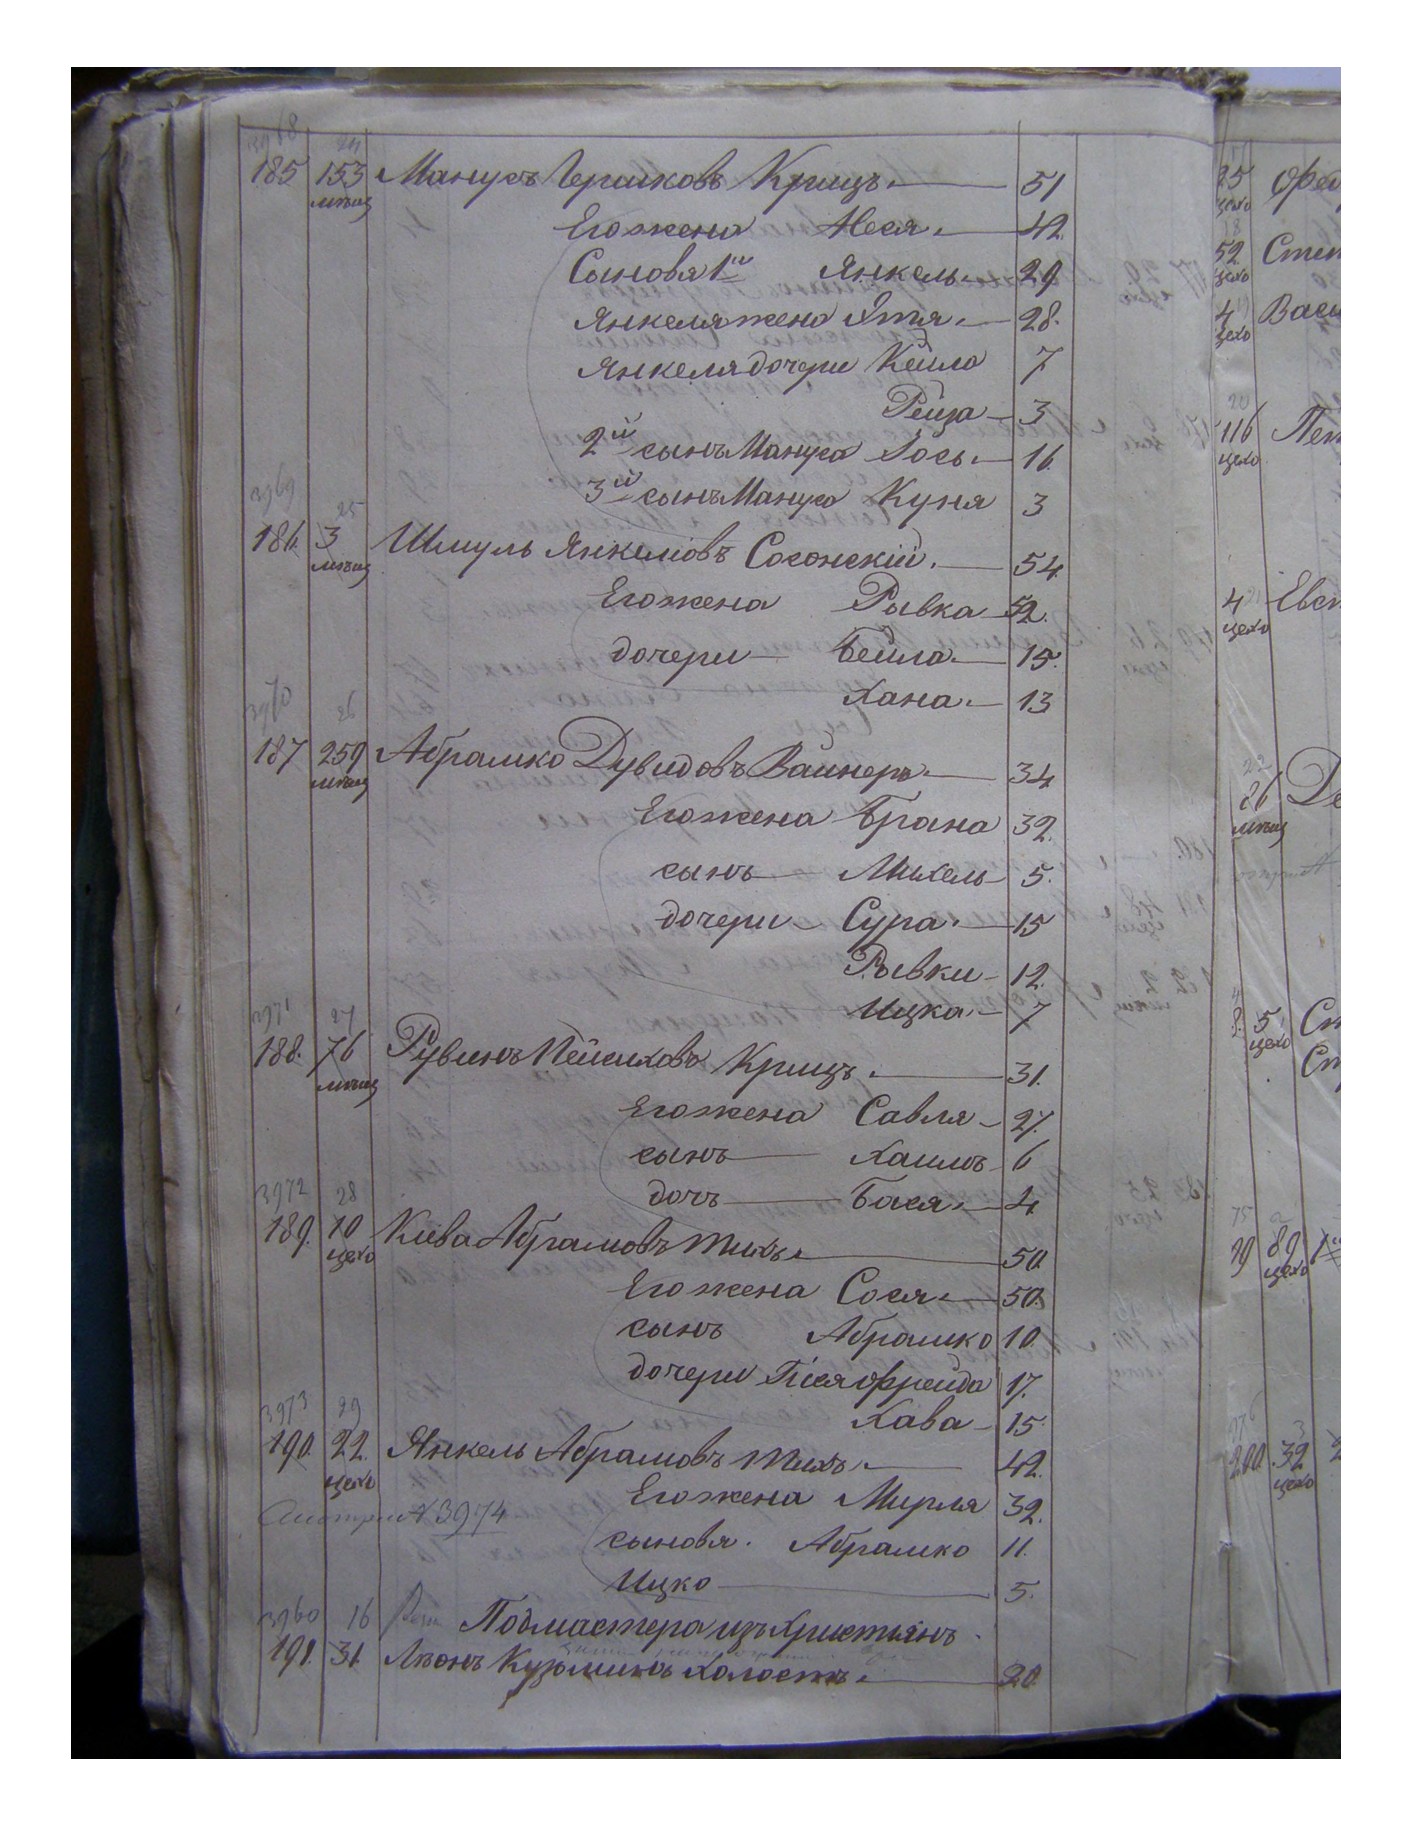 3968 24
185 153 Манусъ Гершковъ Крицъ. 51
мѣщ
Его жена Неся. 42.
Сыновя 1й Янкель. 29
Янкеля жена Этя. 28.
Янкеля дочери Кейла 7
Рейза 3
2й сынъ Мануса Іось. 16
3й сынъ Мануса Куня 3
3969 25
186 3 Шмуль Янкелiовъ Сосонскiй. 54.
мѣщ
Его жена Рывка 52.
дочери Бейла. 15.
Хана. 13
3970 26
187 259 Абрамко Дувидовъ Вайнеръ. 34
мѣщ
Его жена Брана 32.
сынъ Михель 5.
дочери Сура. 15
Рывки 12.
Ицка. 7
3971 27
188. 76 Рувинъ Пейсиховъ Крицъ. 31.
мѣщ
Его жена Савля 27.
сынъ Хаимъ 6
дочъ Бася. 4.
3972 28
189. 10 Кива Абрамовъ Тихъ. 50
цехо
Его жена Сося. 50.
сынъ Абрамко 10.
дочери Гися Фрейда 17.
Хава 15.
3973 29
190. 22. Янкель Абрамовъ Тихъ. 42.
цехо
Его жена Мирля 32.
Смотри N 3974
сыновя. Абрамко 11.
Ицко 5.
3960 16 Подмастера изъ Христіянъ.
191. 31. Лѣонъ Кузьминъ Холостъ. 20.
25
цехо
52 Степ
цехо
4 Васи
цехо
20
116 Пет
цехо
4 Евст
цехо
22
26 Де
мѣщ
5 Ст
цехо
Ст
89
цехо
200. 32
цехо